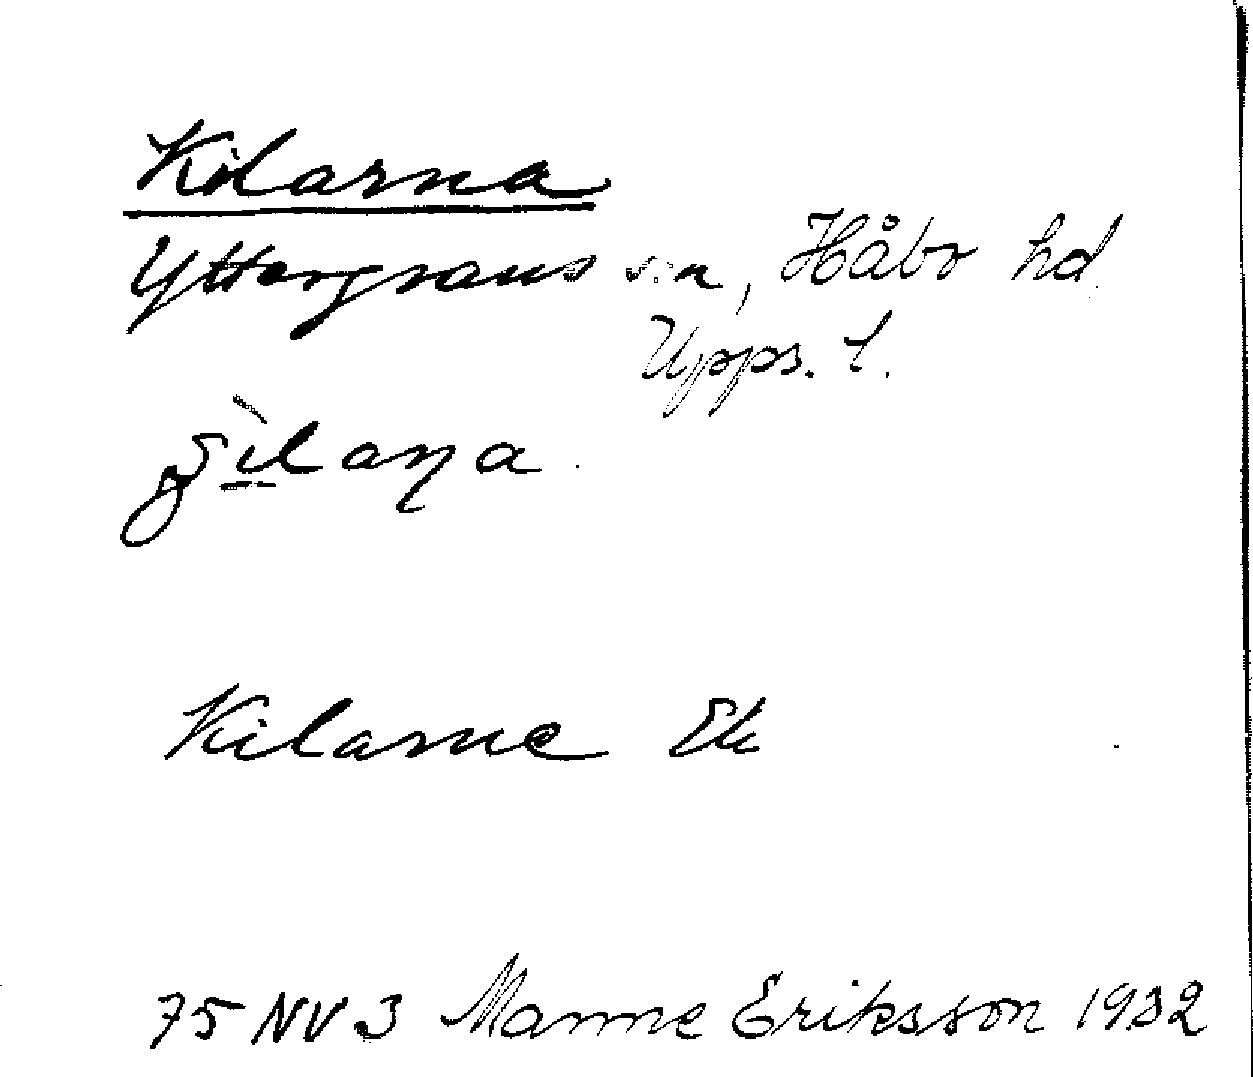 Kilarna
Yttergrans sn, Håbo hd
Upps. l.
Kilarne Ek
75 NV 3 Manne Eriksson 1932